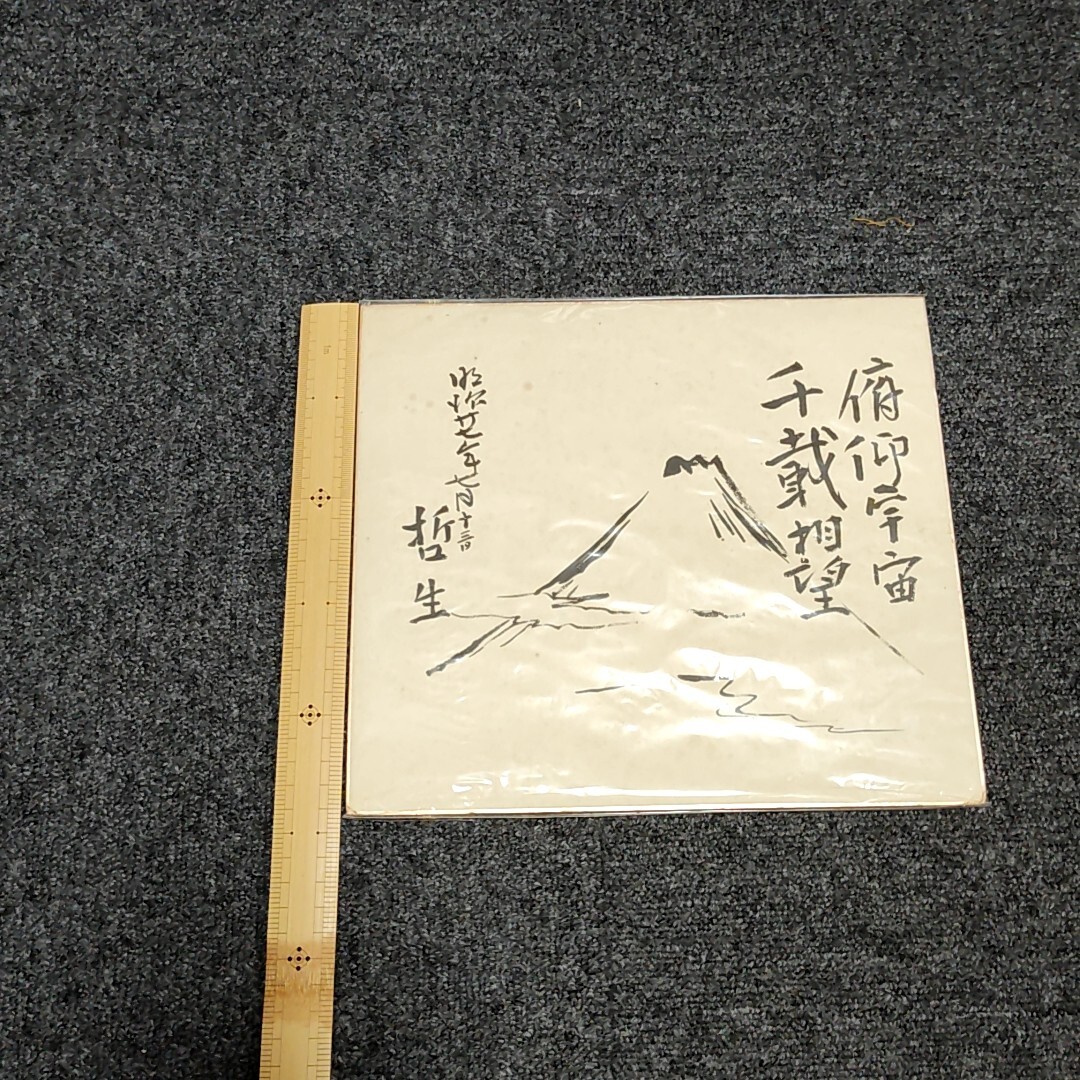 俯仰宇宙
千載相望
昭治廿七年七月十三日
哲生